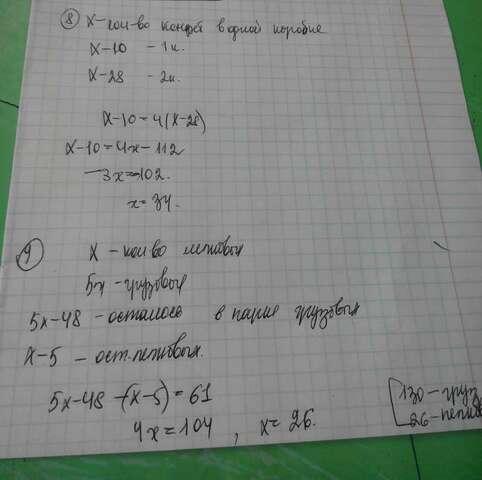 8 x – кол-во конфет в одной коробке
x–10 – 1к.
x–28 – 2к.
x–10=4(x–28)
x–10=4x–112
–3x=–102.
x=34.
9 x – кол-во легковых
5x – грузовых
5x–48 – осталось в парке грузовых
x–5 – ост. легковых.
5x–48–(x–5)=61
4x=104, x=26.
130–груз
26–легков